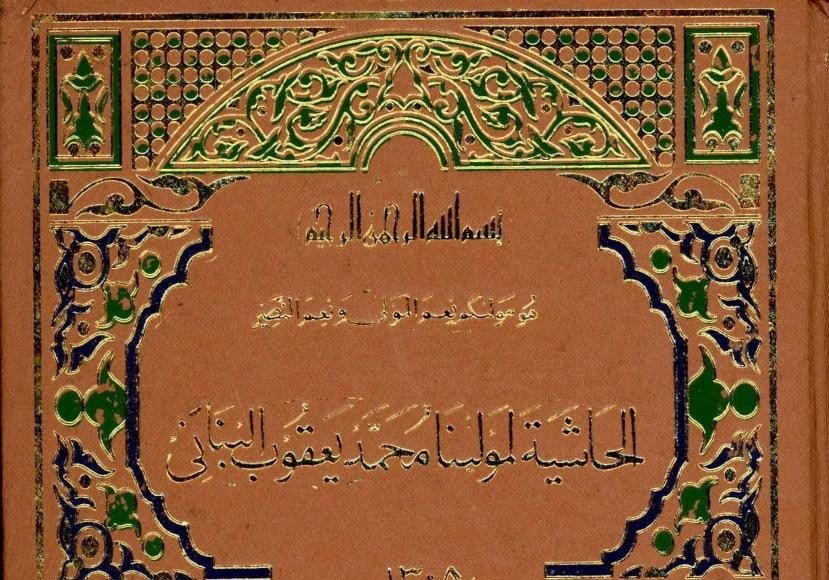 بسم الله الرحمن الرحيم
هو مولىكم نعم المولى و نعم النصير
الحاشية لمولينا محمد يعقوب البنانى
١٣٠٥